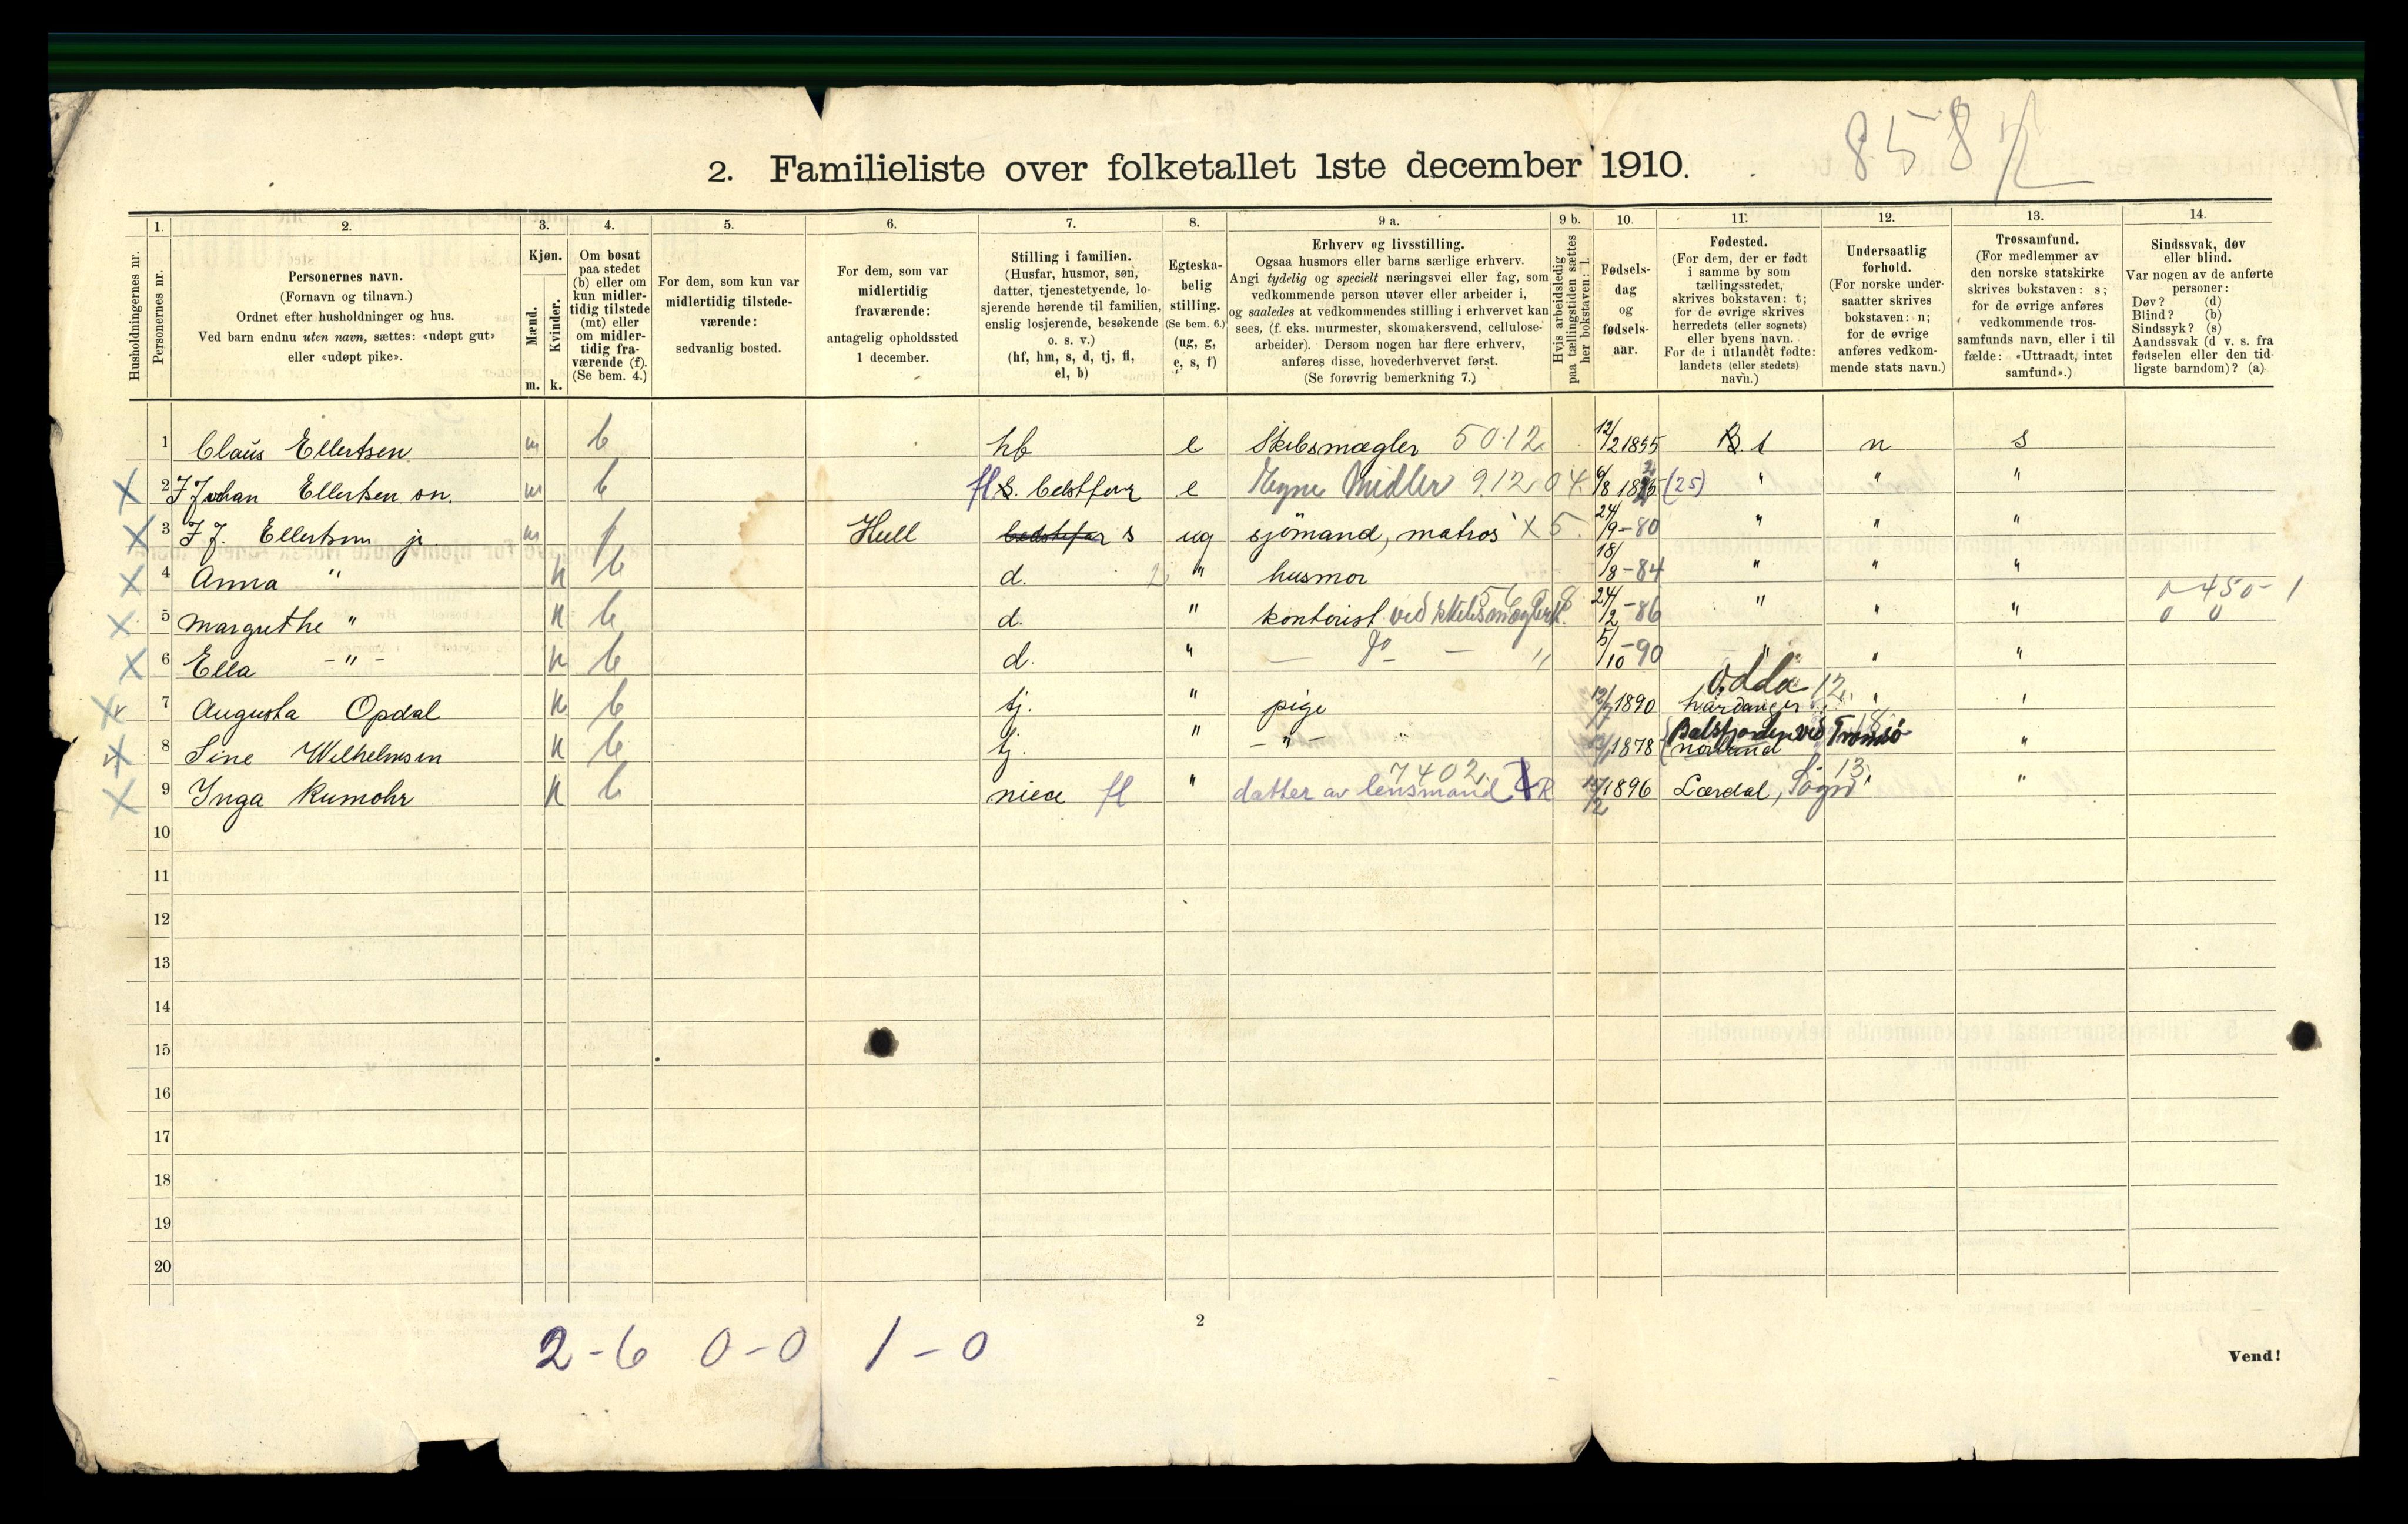 858
2. Familieliste over folketallet 1ste december 1910.
Husholdningernes nr.
1. Personernes nr.
2. Personernes navn. (Fornavn og tilnavn.) Ordnet efter husholdninger og hus. Ved barn endnu uten navn, sættes: «udøpt gut» eller «udøpt pike».
3. Kjøn. Mænd. m. Kvinder. k.
4. Om bosat paa stedet (b) eller om kun midlertidig tilstede (mt) eller om midlertidig fraværende (f). (Se bem. 4.)
5. For dem, som kun var midlertidig tilstedeværende: sedvanlig bosted.
6. For dem, som var midlertidig fraværende: antagelig opholdssted 1 december.
7. Stilling i familien. (Husfar, husmor, søn, datter, tjenestetyende, losjerende hørende til familien, enslig losjerende, besøkende o. s. v.) (hf, hm, s, d, tj, fl, el, b)
8. Egteskabelig stilling. (Se bem. 6.) (ug, g, e, s, f)
9 a. Erhverv og livsstilling. Ogsaa husmors eller barns særlige erhverv. Angi tydelig og specielt næringsvei eller fag, som vedkommende person utøver eller arbeider i, og saaledes at vedkommendes stilling i erhvervet kan sees, (f. eks. murmester, skomakersvend, cellulosearbeider). Dersom nogen har flere erhverv, anføres disse, hovederhvervet først. (Se forøvrig bemerkning 7.)
9 b. Hvis arbeidsledig paa tællingstiden sættes her bokstaven: l.
10. Fødselsdag og fødselsaar.
11. Fødested. (For dem, der er født i samme by som tællingsstedet, skrives bokstaven: t; for de øvrige skrives herredets (eller sognets) eller byens navn. For de i utlandet fødte: landets (eller stedets) navn.)
12. Undersaatlig forhold. (For norske undersaatter skrives bokstaven: n; for de øvrige anføres vedkommende stats navn.)
13. Trossamfund. (For medlemmer av den norske statskirke skrives bokstaven: s; for de øvrige anføres vedkommende trossamfunds navn, eller i tilfælde: «Uttraadt, intet samfund».)
14. Sindssvak, døv eller blind. Var nogen av de anførte personer: Døv? (d) Blind? (b) Sindssyk? (s) Aandssvak (d v. s. fra fødselen eller den tidligste barndom)? (a)
1 Claus Ellertsen m b hf e Skibsmægler 5012 12/2 1855 t n s
2 J Johan Ellertsen sn. m b fl bedstfar e Egne Midler 912 04 6/8 18 (25) " " "
3 J J. Ellertsen jr. m f Hull bedstefar s ug sjömand, matros X 5. 24/9-80 " " "
4 Anna " k b d. 2 " husmor 18/8-84 " " "
5 Margrethe " k b d. " kontorist ved skibsmæglerk. 24/2-86 " " "
0-450-1
0 0
6 Ella -"- k b d. " - Do - " 5/10-90 " " "
7 Augusta Opdal k b tj. " pige 12/7 1890 Odda 12 hardanger " "
8 Sine Wilhelmsen k b tj. " -"- 1878 Balsfjorden ved Tromsø 18 norland "
9 Inga Rumohr k b niece fl " datter av lensmand 7402 R 15/12 1896 Lærdal, Sogn 13 " "
10
11
12
13
14
15
16
17
18
19
20
2
2-6 0-0 1-0
Vend!